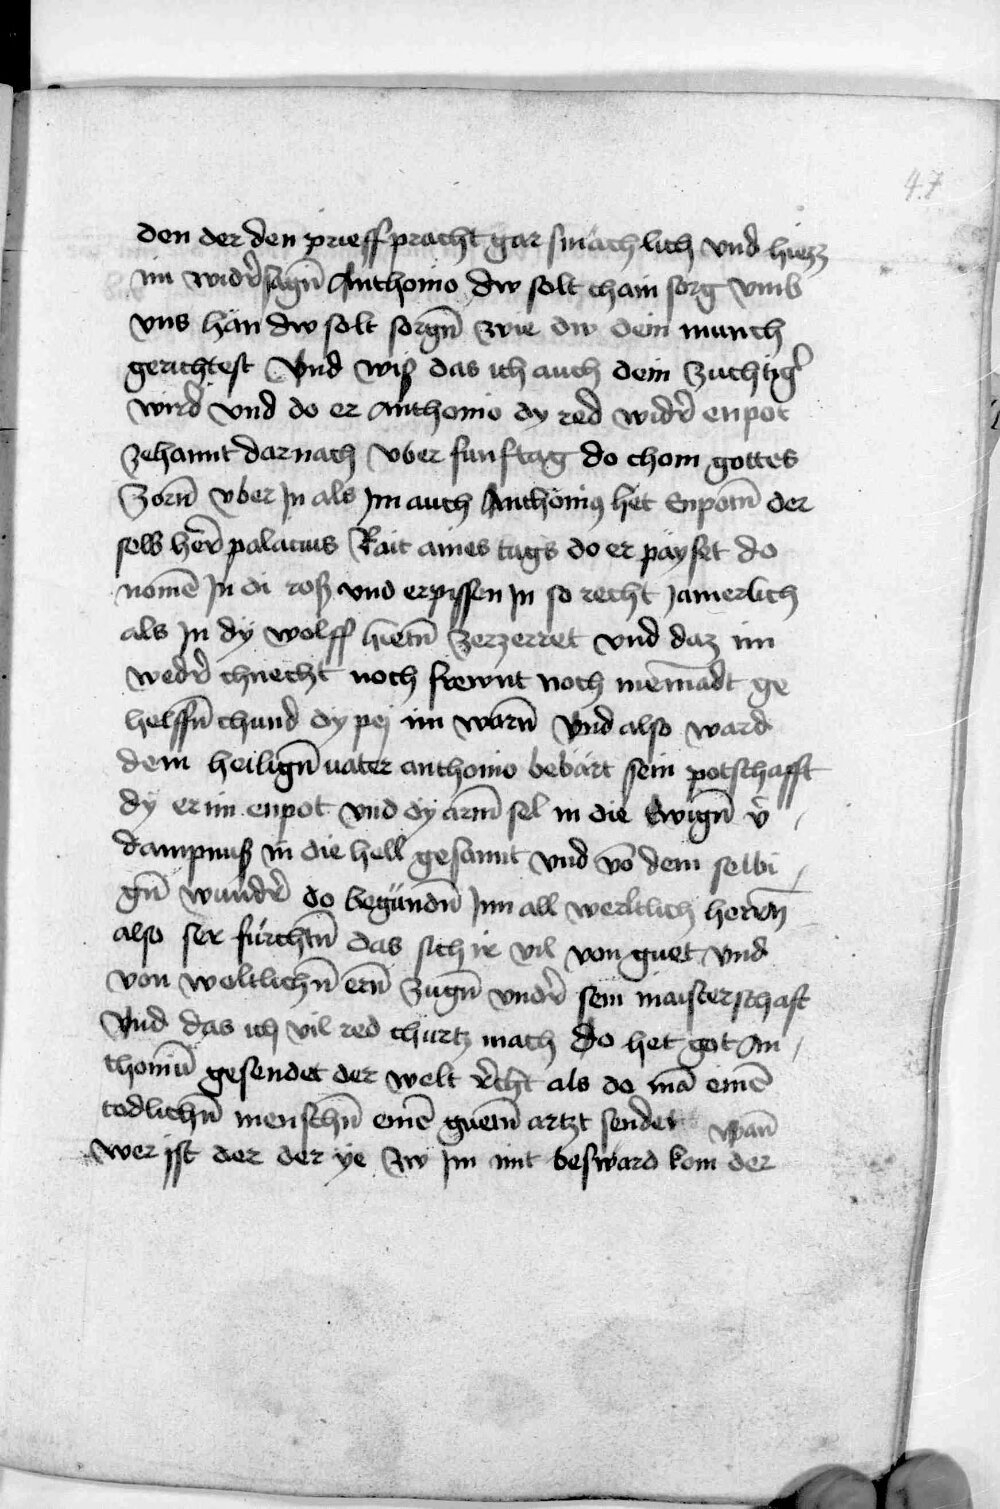 47
den der den prieff pracht gar smächlich vnd hiezz
im widerͬsagn̄ Anthonio dw solt chain sorg vmb
vns han dw solt sorgn̄ wie dw dein munch
gerichtest Vnd wiß das ich auch dein zuchtigͬ
wirdͬ vnd do er Anthonio dy red widͬ enpot
zehannt darnach vber funf tag do chom gottes
Zorn̄ vber Jn als Jm auch Anthönius het Enpotn̄ der
selb her̄ palacius Rait aines tags do er päyset do
nomē Jn di roß vnd erpissen Jn so recht Jamerlich
als Jn dÿ wolff hietn̄ zerzerret vnd daz im
wedͬ chnecht noch frewnt noch niemādt ge
helffn̄ chund dy pej im warn̄ Vnd also ward
dem heilign̄ vater anthonio bebärt sein potschafft
dÿ er im enpot vnd dy arm̄ sel in die Ewign̄ vͬ
dampnuß in die hell gesannt vnd vō dem selbi
gn̄ wundͬ do begündn̄ Jm all werltlich herrn̄
also ser fürchtn̄ das sich ir vil von guet vnd
von weltlichn̄ ern̄ zugn̄ vndͬ sein maisterschaft
Vnd das ich vil red churtz mach do het got An
thoniū gesendet der welt recht als do mā einē
todlichn̄ menschn̄ einē guetn̄ artzt sendet wan̄
wer jst der der ye zw Jm mit beswärd kom der